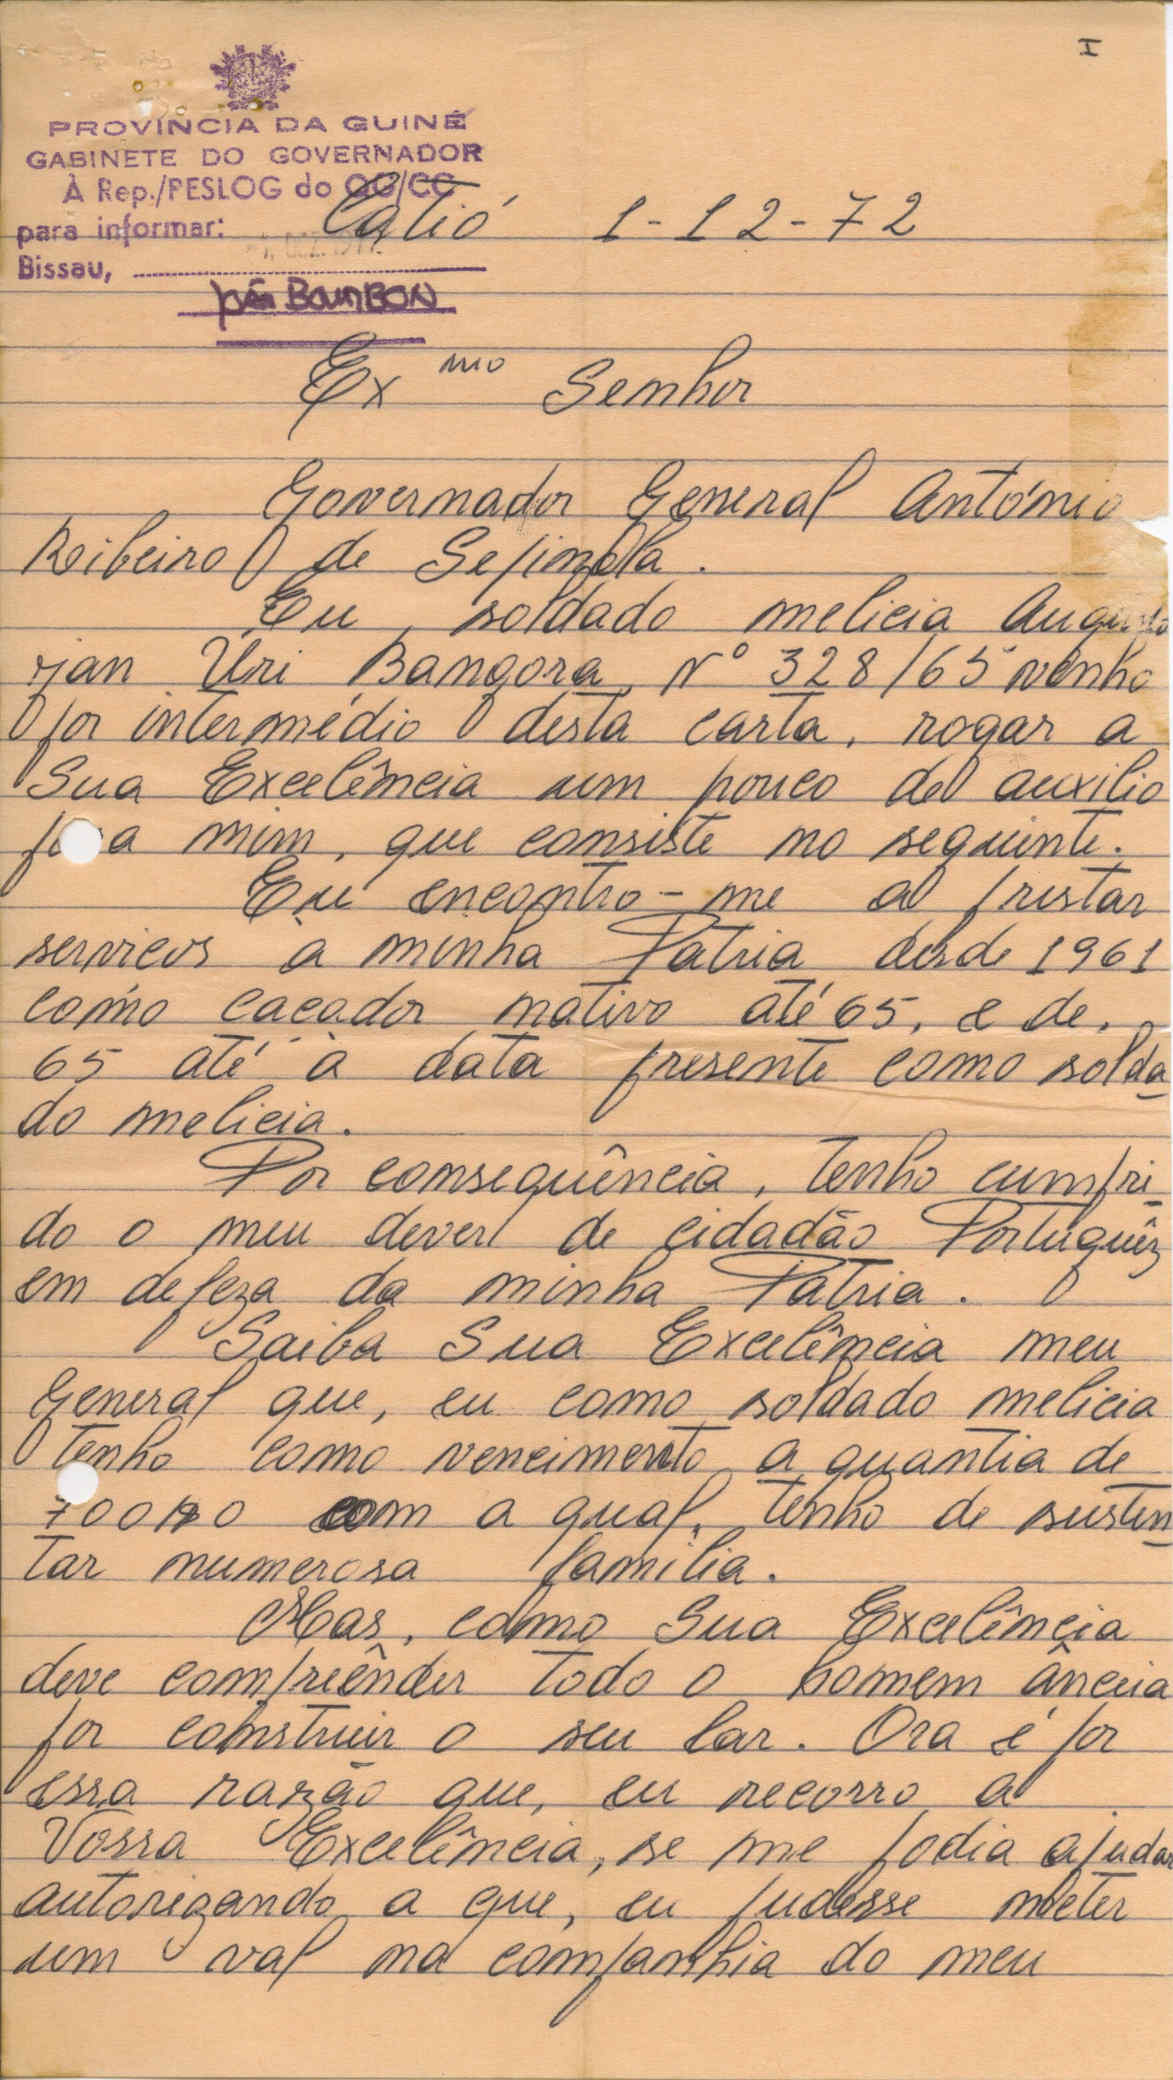 I
PROVÍNCIA DA GUINÉ
GABINETE DO GOVERNADOR
À Rep./PESLOG do QG/CC
para informar:
Catió 1-12-72
Bissau,
BOURBON
Ex mo Senhor
Governador General António
Ribeiro de Sepinola.
Eu, soldado melicia
rjan Úri Bangora, Nº 328/65 venho
por intermédio desta carta, rogar a
Sua Excelência um pouco de auxilio
mim, que consiste no seguinte.
Eu encontro-me a prestar
serviços à minha Patria desde 1961
como caçador nativo até 65, e de,
65 até à data presente como solda
do melicia.
Por consequência, tenho cumpri_
do o meu dever de cidadão Portuguêz
em defeza da minha Patria.
Saiba Sua Excelência meu
General que, eu como soldado melicia
tenho como vencimento a quantia de
700$0 com a qual, tenho de susten
tar numerosa familia.
Mas, como Sua Excelência
deve compriênder todo o homem ânceia
por construir o seu lar. Ora é por
essa razão que, eu recorro a
Vossa Excelência, se me podia ajudar
autorizando a que, eu pudesse meter
um val na companhia do meu